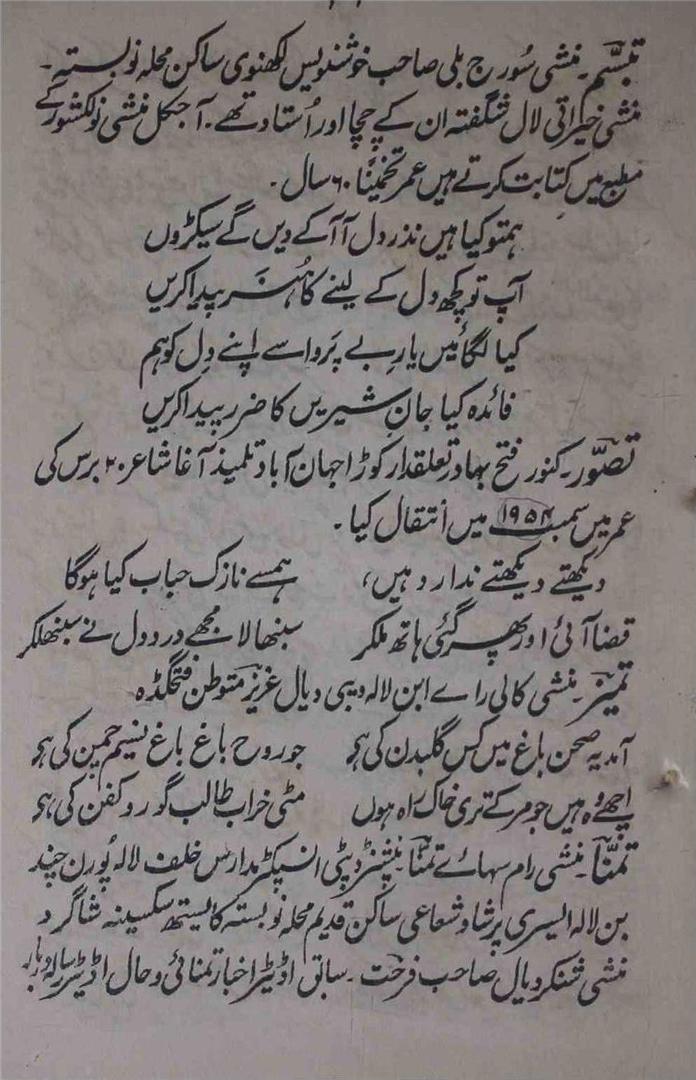 تبسّم۔ منشی سُورج بلی صاحب خوشنویس لکھنوی ساکن محلہ نوبستہ۔
منشی خیراتی لال شگفتہ ان کے چچا اور اُستاد تھے۔ آجکل منشی نولکشور کے
مطبع میں کتابت کرتے ہیں عمر تخمیناً ۶۰ سال۔
ہمتو کیا ہیں نذر دل آ آ کے دیں گے سیکڑوں
آپ تو کچھ دل کے لینے کا ہُنر پیدا کریں
کیا لگائیں یارِ بے پَروا سے اپنے دِل کو ہم
فائدہ کیا جانِ شیریں کا ضرر پیدا کریں
تصوّر۔ کنور فتح بہادر تعلقدار کوڑا جہان آباد تلمیذ آغا شاعر ۲۰ برس کی
عمر میں سمبت ۱۹۵۴ میں انتقال کیا۔
دیکھتے دیکھتے ندارد ہیں، ہمسے نازک حباب کیا ہوگا
قضا آئی اور پھر گئی ہاتھ ملکر سنبھالا مجھے درد دل نے سنبھلکر
تمیز۔ منشی کالی راے ابن لالہ دیبی دیال عزیز متوطن فتحگڈہ
آمد یہ صحن باغ میں کس گلبدن کی ہی جو روح باغ باغ نسیم چمن کی ہی
اچھے وہ ہیں جو مر کے تری خاک راہ ہوں مٹی خراب طالب گور و کفن کی ہی
تمنّا۔ منشی رام سہاے تمنّا پنشنر ڈپٹی انسپکٹر مدارس خلف لالہ پُورن چند
بن لالہ ایسری پرشاد شعاعی ساکن قدیم محلہ نوبستہ کایستھ سکسینہ شاگرد
منشی شنکر دیال صاحب فرحت۔ سابق اوڈیٹر اخبار تمنائی و حال اڈیٹر رسالہ دربار